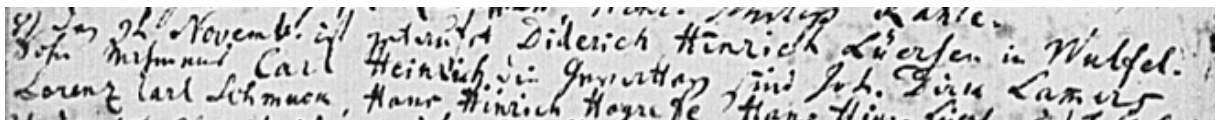 Philip Kahle.
den 21 Novemb. ist getauft Diderich Hinrich Lüersen in Wulfel.
Sohn Nahmens Carl Heinrich, die Gevattern sind Joh. Dirk Lamers
Lorenz Carl Schmuck, Hans Hinrich Hogrefe Hans Hinr.